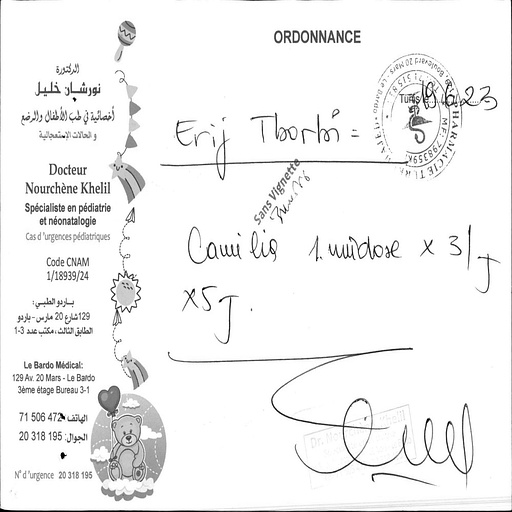 ORDONNANCE
الدكتورة
نورشان خليل
أخصائية في طب الأطفال والرضع
و الحالات الإستعجالية
Docteur
Nourchène Khelil
Spécialiste en pédiatrie
et néonatalogie
Cas d'urgences pédiatriques
Code CNAM
1/18939/24
بــاردو الطبـي :
129 شارع 20 مارس - باردو
الطابق الثالث، مكتب عدد 3-1
Le Bardo Médical:
129 Av. 20 Mars - Le Bardo
3ème étage Bureau 3-1
الهاتف: 71 506 472
الجوال: 20 318 195
N° d'urgence 20 318 195
19.6.23
Erij Thorbi =
Sans Vignette
Camilia 1 unidose x 3/J
x5J.